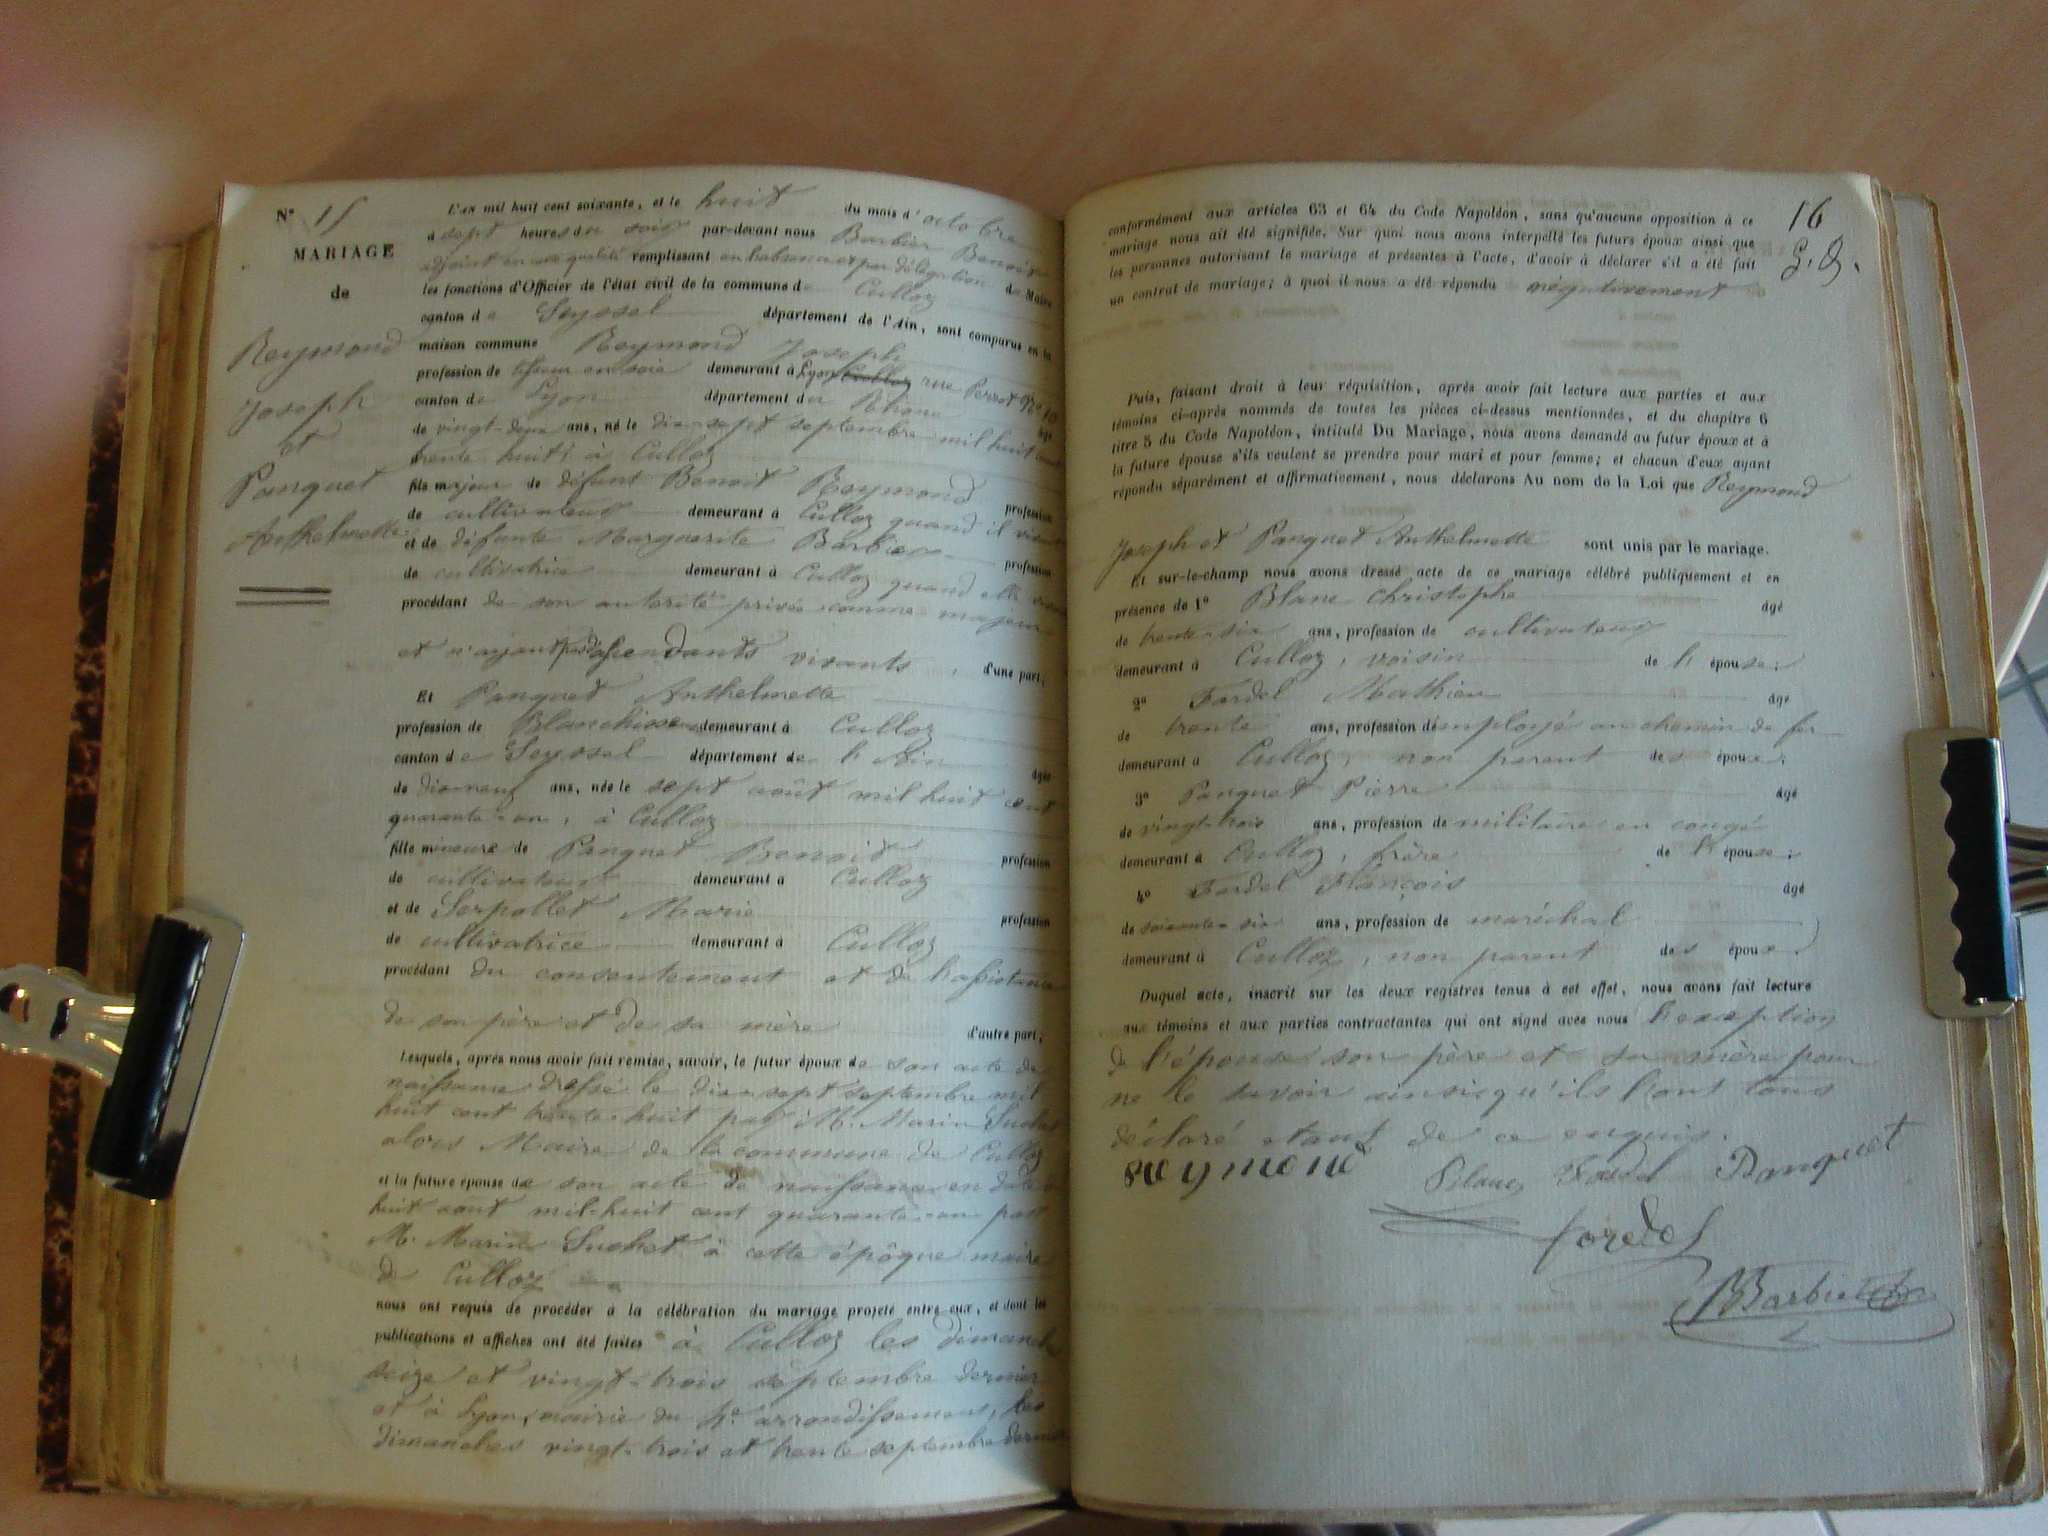 N° 15
MARIAGE
de
Reymond
Joseph
et
Panguet
Anthelmette
L'AN mil huit cent soixante, et le huit du mois d'octobre
à sept heures du soir par-devant nous Barbier Benoit
adjoint en cette qualité remplissant en l'absence et par délégation du Maire
les fonctions d'Officier de l'état civil de la commune de Culloz
canton de Seyssel département de l'Ain, sont comparus en la
maison commune Reymond Joseph
profession de tisseur en soie demeurant à Lyon Culloz rue Perrot N° 10
canton de Lyon département du Rhône âgé
de vingt-deux ans, né le dix-sept septembre mil huit cent
trente huit, à Culloz
fils majeur de défunt Benoit Reymond profession
de cultivateur demeurant à Culloz quand il vivait
et de défunte Marguerite Barbier profession
de cultivatrice demeurant à Culloz quand elle vivait
procédant de son autorité privée comme majeur
et n'ayant pas d'ascendants vivants, d'une part;
Et Panguet Anthelmette
profession de Blanchisseuse demeurant à Culloz
canton de Seyssel département de l'Ain âgée
de dix-neuf ans, née le sept août mil huit cent
quarante-un, à Culloz
fille mineure de Panguet Benoit profession
de cultivateur demeurant à Culloz
et de Serpollet Marie profession
de cultivatrice demeurant à Culloz
procédant du consentement et de l'assistance
de son père et de sa mère d'autre part;
Lesquels, après nous avoir fait remise, savoir, le futur époux de son acte de
naissance dressé le dix-sept septembre mil
huit cent trente-huit par M. Marin Suchet
alors Maire de la commune de Culloz
et la future épouse de son acte de naissance en date du
huit août mil-huit cent quarante-un par
M. Marin Suchet à cette époque maire
de Culloz
nous ont requis de procéder à la célébration du mariage projeté entre eux, et dont les
publications et affiches ont été faites à Culloz les dimanches
seize et vingt-trois septembre dernier
et à Lyon, mairie du 4e arrondissement, les
dimanches vingt-trois et trente septembre dernier
16
conformément aux articles 63 et 64 du Code Napoléon, sans qu'aucune opposition à ce
mariage nous ait été signifiée. Sur quoi nous avons interpellé les futurs époux ainsi que
les personnes autorisant le mariage et présentes à l'acte, d'avoir à déclarer s'il a été fait
un contrat de mariage; à quoi il nous a été répondu négativement
Puis, faisant droit à leur réquisition, après avoir fait lecture aux parties et aux
témoins ci-après nommés de toutes les pièces ci-dessus mentionnées, et du chapitre 6
titre 5 du Code Napoléon, intitulé Du Mariage, nous avons demandé au futur époux et à
la future épouse s'ils veulent se prendre pour mari et pour femme; et chacun d'eux ayant
répondu séparément et affirmativement, nous déclarons Au nom de la Loi que Reymond
Joseph et Panguet Anthelmette sont unis par le mariage.
Et sur-le-champ nous avons dressé acte de ce mariage célébré publiquement et en
présence de 1° Blanc Christophe âgé
de trente-six ans, profession de cultivateur
demeurant à Culloz, voisin de l'épouse;
2° Fardel Mathieu âgé
de trente ans, profession d'employé au chemin de fer
demeurant à Culloz, non parent des époux;
3° Panguet Pierre âgé
de vingt-trois ans, profession de militaire en congé
demeurant à Culloz, frère de l'épouse;
4° Fardel François âgé
de soixante-six ans, profession de maréchal
demeurant à Culloz, non parent des époux.
Duquel acte, inscrit sur les deux registres tenus à cet effet, nous avons fait lecture
aux témoins et aux parties contractantes qui ont signé avec nous l'exception
de l'épouse son père et sa mère pour
ne le savoir ainsi qu'ils l'ont tous
déclaré étant de ce enquis.
Reymond Blanc Fardel Panguet
fardel
BBarbier